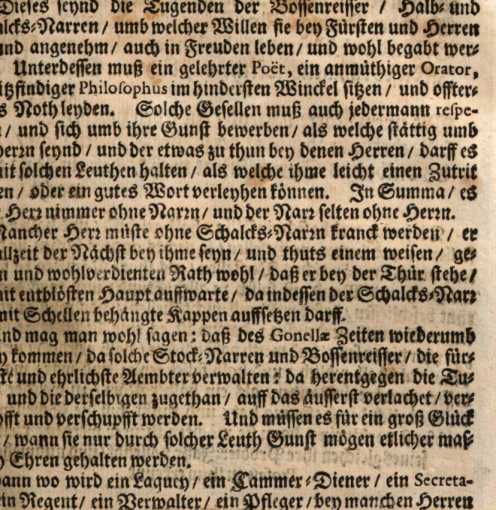 Dieses seynd die Tugenden der Bossenreisser / Halb- und
alcks-Narren / umb welcher Willen sie bey Fürsten und Herren
und angenehm / auch in Freuden leben / und wohl begabt wer-
Unterdessen muß ein gelehrter Poët, ein anmüthiger Orator,
itzfindiger Philosophus im hindersten Winckel sitzen / und offter-
s Noth leyden. Solche Gesellen muß auch jedermann respe-
/ und sich umb ihre Gunst bewerben / als welche stättig umb
herrn seynd / und der etwas zu thun bey denen Herren / darff es
mit solchen Leuthen halten / als welche ihme leicht einen Zutrit
en / oder ein gutes Wort verleyhen können. In Summa / es
Herr nimmer ohne Narrn / und der Narr selten ohne Herrn.
Mancher Herr müste ohne Schalcks-Narrn kranck werden / er
allzeit der Nächst bey ihme seyn / und thuts einem weisen / ge-
n und wohlverdienten Rath wohl / daß er bey der Thür stehe /
mit entblösten Haupt auffwarte / da indessen der Schalcks-Narr
mit Schellen behängte Kappen auffsetzen darff.
nd mag man wohl sagen: daß des Gonellæ Zeiten wiederumb
kommen / da solche Stock-Narren und Bossenreisser / die für-
ste und ehrlichste Aembter verwalten: da herentgegen die Tu-
und die derselbigen zugethan / auff das äusserst verlachet / ver-
fft und verschupfft werden. Und müssen es für ein groß Glück
/ wann sie nur durch solcher Leuth Gunst mögen etlicher maß-
Ehren gehalten werden.
ann wo wird ein Laquey / ein Cammer-Diener / ein Secreta-
ein Regent / ein Verwalter / ein Pfleger / bey manchen Herren